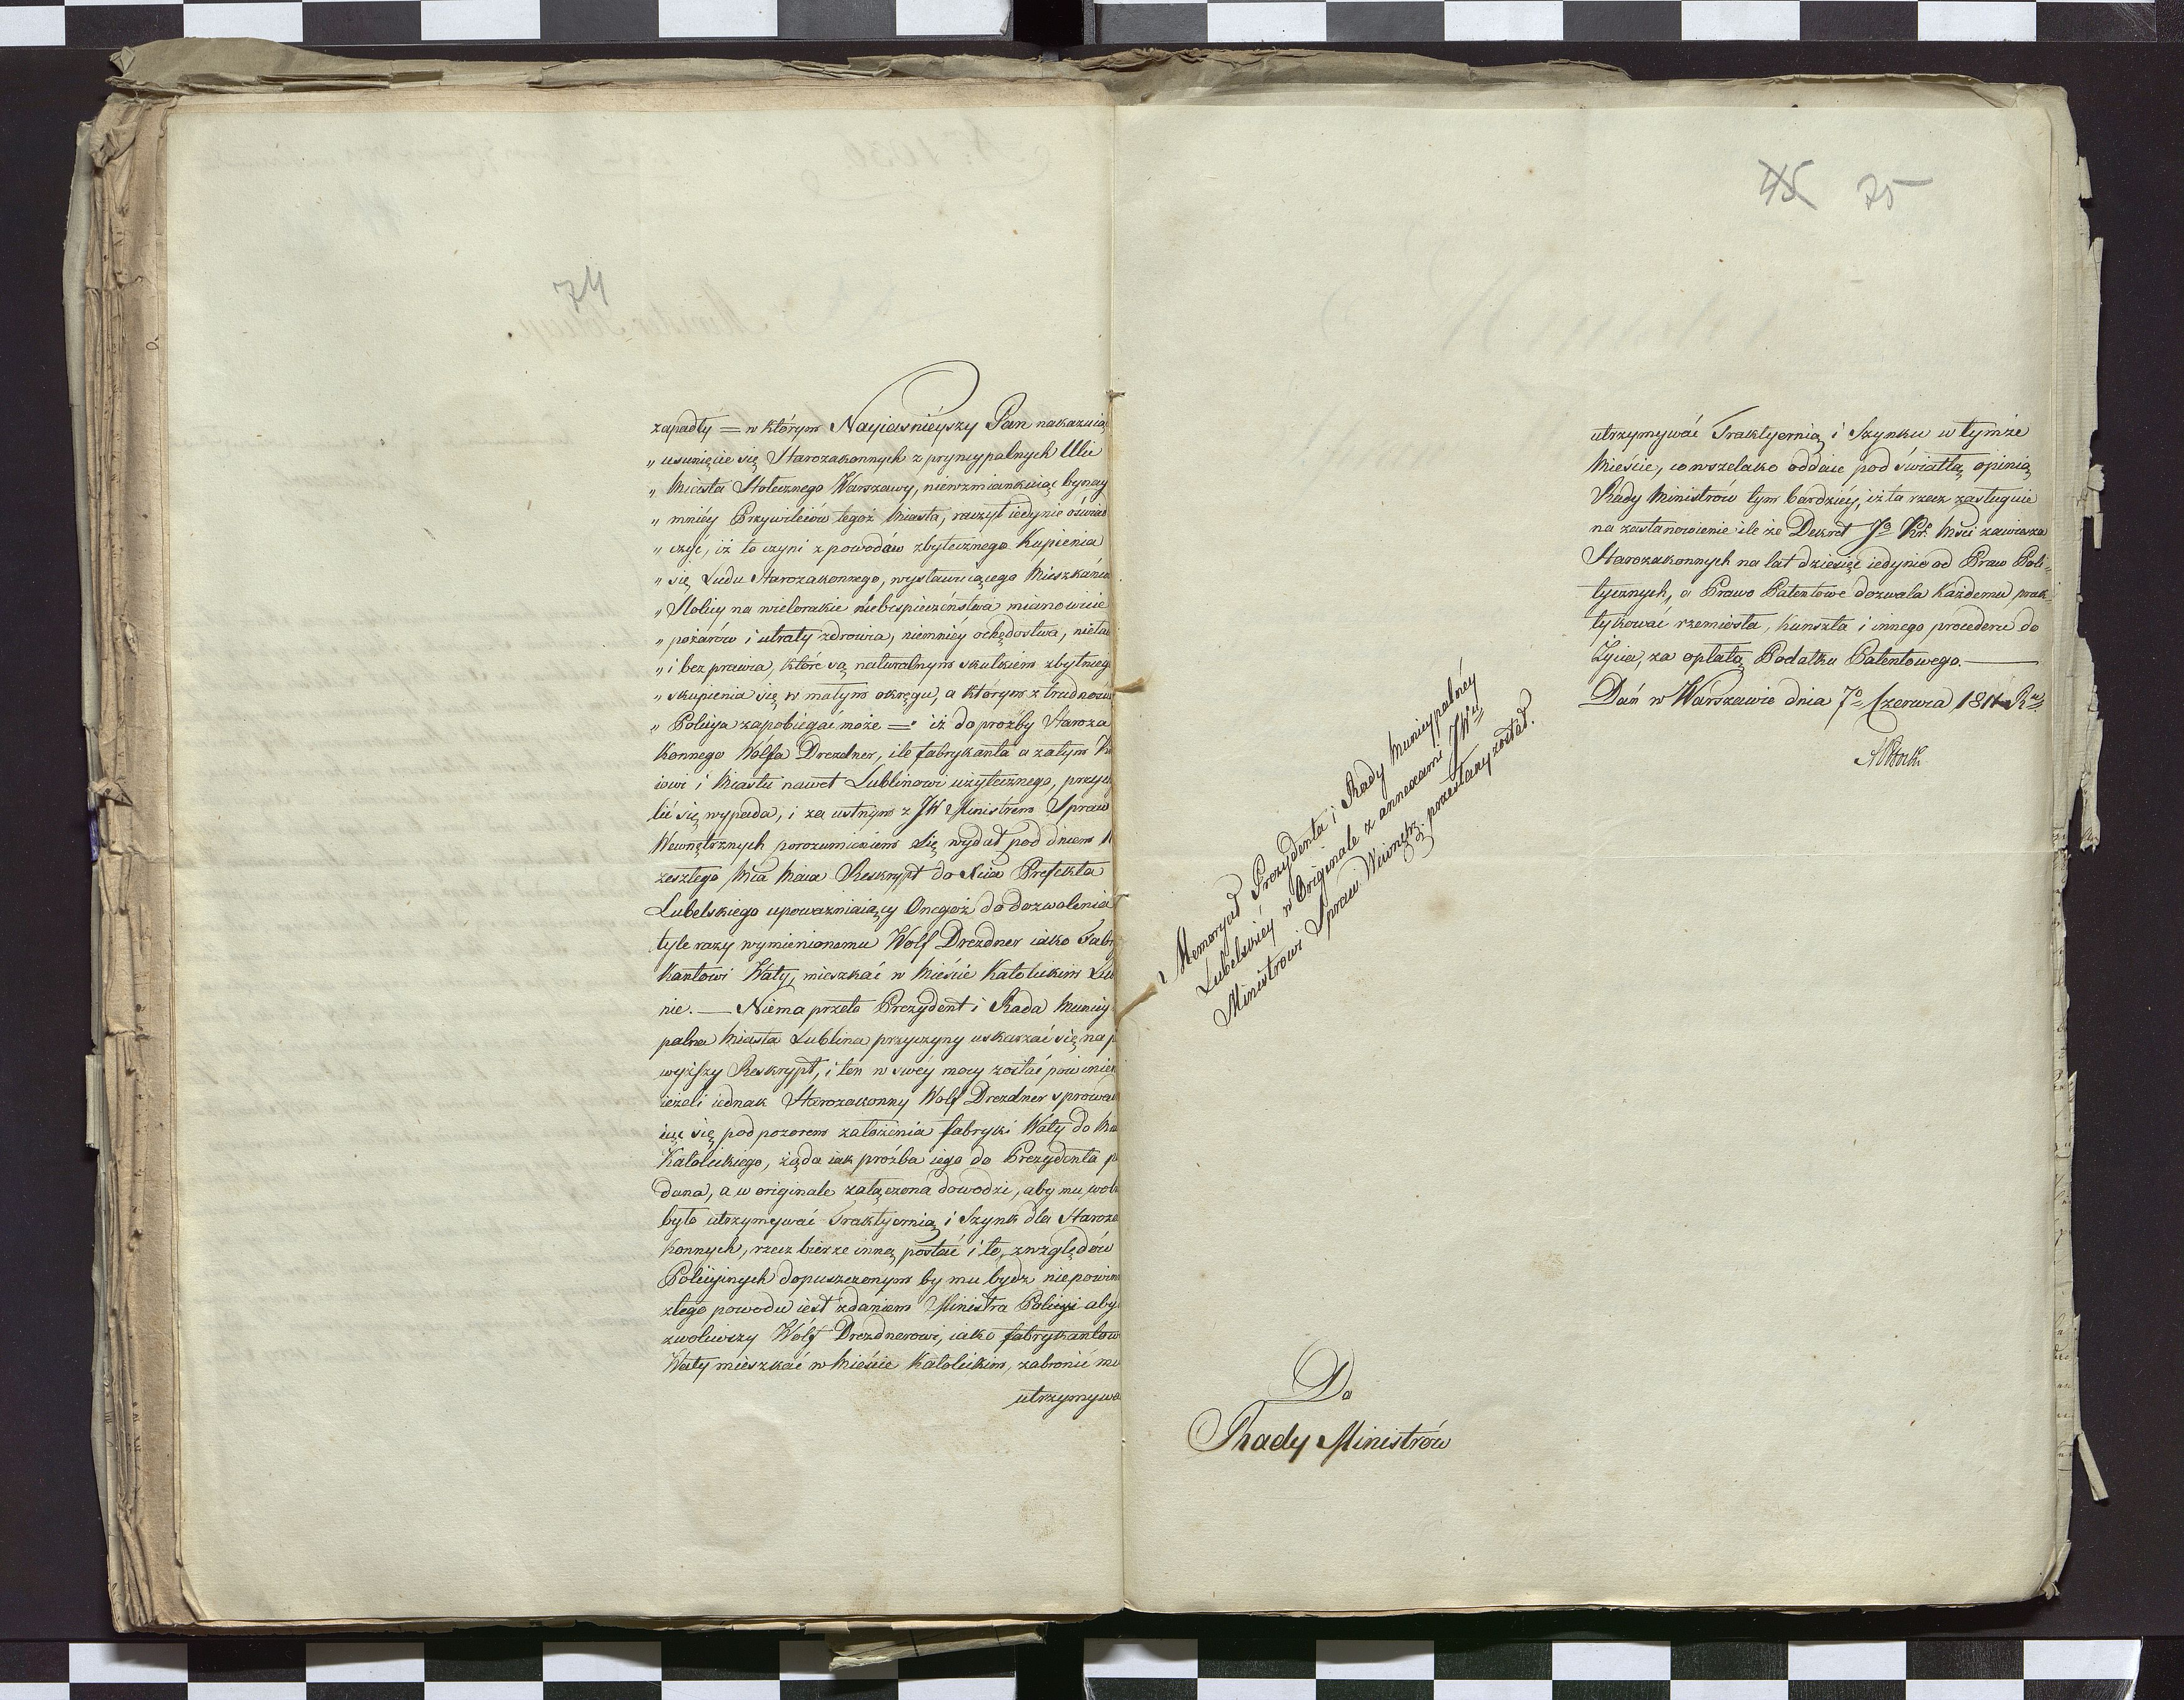 74
zapadły = w którym Nayiaśnieyszy Pan nakazuiąc
„ usunięcie się Starozakonnych z pryncypalnych Ulic
„ Miasta Stołecznego Warszawy, niewzmiankuiąc bynay
„ mniéy Przywileiów tegoż Miasta, raczył iedynie oświad
„ czyć, iż to czyni z powodów zbytecznego Kupienia
„ się Ludu Starozakonnego, wystawuiącego Mieszkańca
„ Stolicy na wielorakie niebespieczeństwa mianowicie
„ pożarów i utraty zdrowia, niemniéy ochędostwa, nieła
„ i bez prawia, które są naturalnym skutkiem zbytnieg
„ skupienia się w małym okręgu, a którym z trudnością
„ Policya zapobiegać może =" iż do prożby Staroza
konnego Wolfa Drezdner, ile fabrykanta a zatym Kra
iowi i Miastu nawet Lublinowi użytecznego, przych
lić się wypada, i za ustnym z JW Ministrem Spraw
Wewnętrznych porozumieniem się wydał pod dniem
zeszłego Mca Maia Reskrypt do Prefekta
Lubelskiego upoważniaiący Onegoż do dozwolenia
tyle razy wymienionemu Wolf Drezdner iako Fabry
kantowi Waty, mieszkać w Mieście Katolickim Lub
nie. — Niema przeto Prezydent i Rada Municy
palna Miasta Lublina przyczyny uskarzać się na p
wyższy Reskrypt, i ten w swéy mocy zostać powinien
ieżeli iednak Starozakonny Wolf Drezdner sprowad
iąc się pod pozorem założenia fabryki Waty do Mia
Katolickiego, żąda iak prożba iego do Prezydenta p
dana, a w originale załączona dowodzi, aby mu woln
było utrzymywać Traktyernią i Szynk dla Staroza
konnych, rzecz bierze inną postać i to, z względów
Policyinych dopuszczonym by mu bydź niepowin
z tego powodu iest zdaniem Ministra Policyi aby
zwoliwszy Wolf Drezdnerowi, iako fabrykantow
Waty mieszkać w Mieście Katolickim, zabronić mu
utrzymywa
75
75
utrzymywać Traktyernią i Szynku w tymże
Mieście, co wszelako oddaie pod światłą opinią
Rady Ministrów tym bardziéy, iż ta rzecz zasługuie
na zastanowienie ile że Dekret Jo Kr. Mści zawiesza
Starozakonnych na lat dziesięć iedynie od Praw Poli-
tycznych, a Prawo Patentowe dozwala każdemu prak-
tykować rzemiosła, kunszta i innego procederu do
Życia, za opłatą Podatku Patentowego. —
Dań w Warszawie dnia 7o Czerwca 1811 Ru
Memoryał Prezydenta i Rady Municypalnéy
Lubelskiéy w Originale z annexami JWu
Ministrowi Spraw Wewnętz. przesłany został.
Do
Rady Ministrów